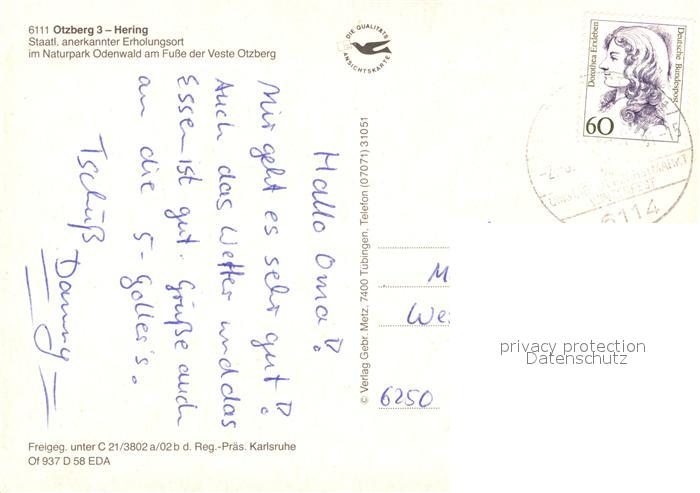 6111 Otzberg 3 – Hering
Staatl. anerkannter Erholungsort
im Naturpark Odenwald am Fuße der Veste Otzberg
DIE QUALITÄTS
ANSICHTSKARTE
Dorothea Erxleben
Deutsche Bundespost
60
6114
Hallo Oma!
Mir geht es sehr gut!
Auch das Wetter und das
Essen ist gut. Grüße auch
an die 5-Goller's.
Tschüß
Danny
© Verlag Gebr. Metz, 7400 Tübingen, Telefon (07071) 31051
M
We
6250
privacy protection
Datenschutz
Freigeg. unter C 21/3802 a/02 b d. Reg.-Präs. Karlsruhe
Of 937 D 58 EDA